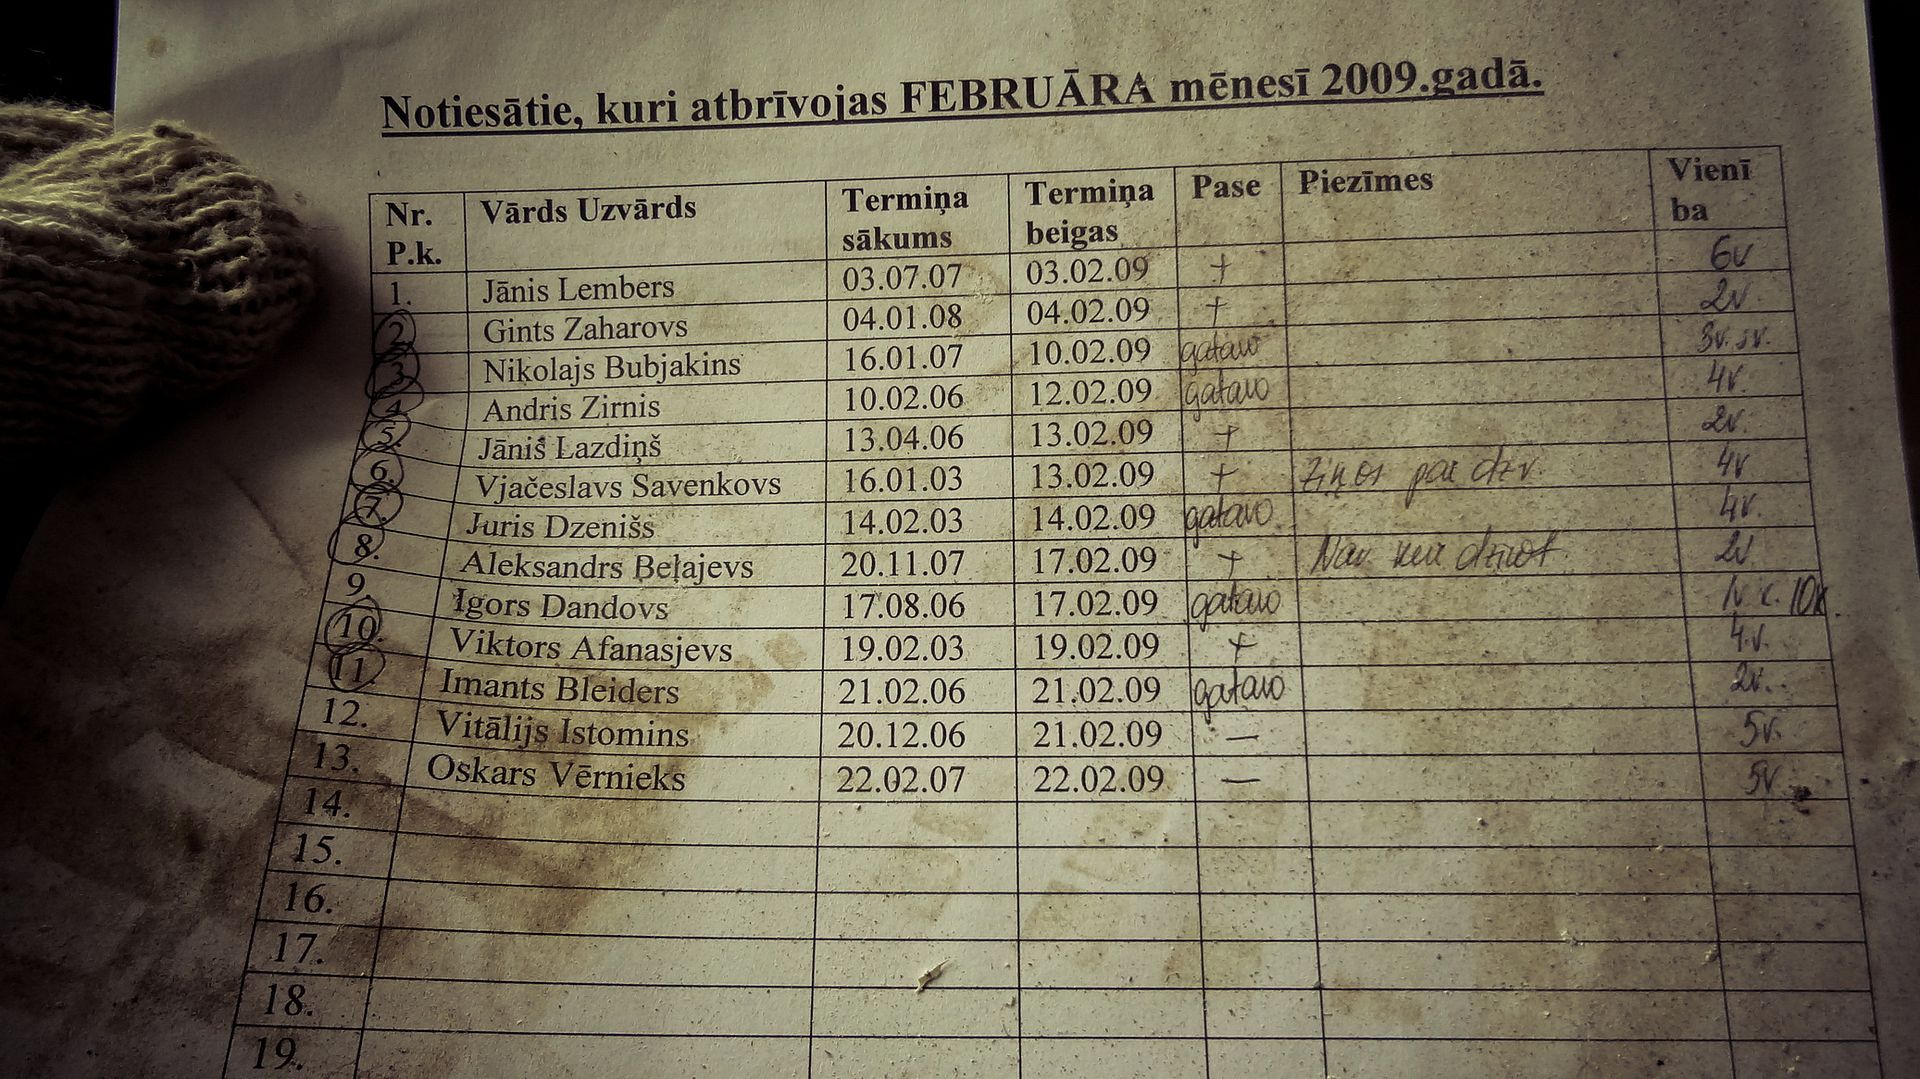 Notiesātie, kuri atbrīvojas FEBRUĀRA mēnesī 2009.gadā.
Nr. P.k. Vārds Uzvārds Termiņa sākums Termiņa beigas Pase Piezīmes Vienī ba
1. Jānis Lembers 03.07.07 03.02.09 + 6v
2. Gints Zaharovs 04.01.08 04.02.09 + 2v.
3. Nikolajs Bubjakins 16.01.07 10.02.09 gatavo 3v.
4. Andris Zirnis 10.02.06 12.02.09 gatavo 4v.
5. Jānis Lazdiņš 13.04.06 13.02.09 + 2v.
6. Vjačeslavs Savenkovs 16.01.03 13.02.09 + Ziņos par dzv. 4v
7. Juris Dzenišs 14.02.03 14.02.09 gatavo 4v.
8. Aleksandrs Beļajevs 20.11.07 17.02.09 + Nav kur dzīvot 2v
9. Igors Dandovs 17.08.06 17.02.09 gatavo 1v k. 10k.
10. Viktors Afanasjevs 19.02.03 19.02.09 + 4.v.
11. Imants Bleiders 21.02.06 21.02.09 gatavo 2v.
12. Vitālijs Istomins 20.12.06 21.02.09 — 5v.
13. Oskars Vērnieks 22.02.07 22.02.09 — 5v.
14.
15.
16.
17.
18.
19.